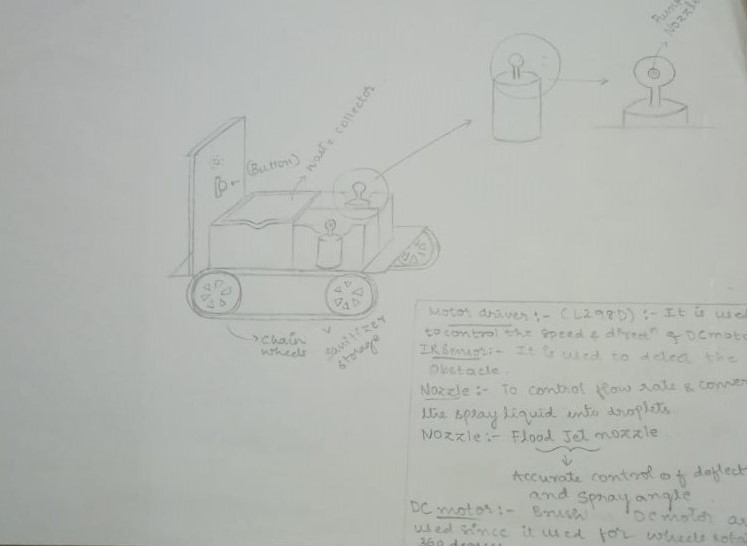 Nozzle
(Button)
waste collector
Chain
wheels
sanitizer
storage
Motor driver :- (L298D) :- It is used
to control the speed & direcn of DC moto
IR Sensor :- It is used to detect the
obstacle.
Nozzle :- To control flow rate & conver
the spray liquid into droplets
Nozzle :- Flood Jet nozzle
Accurate control of deflect
and spray angle
DC motor :- Brush DC motor a
used since it used for wheels rota
360 degree